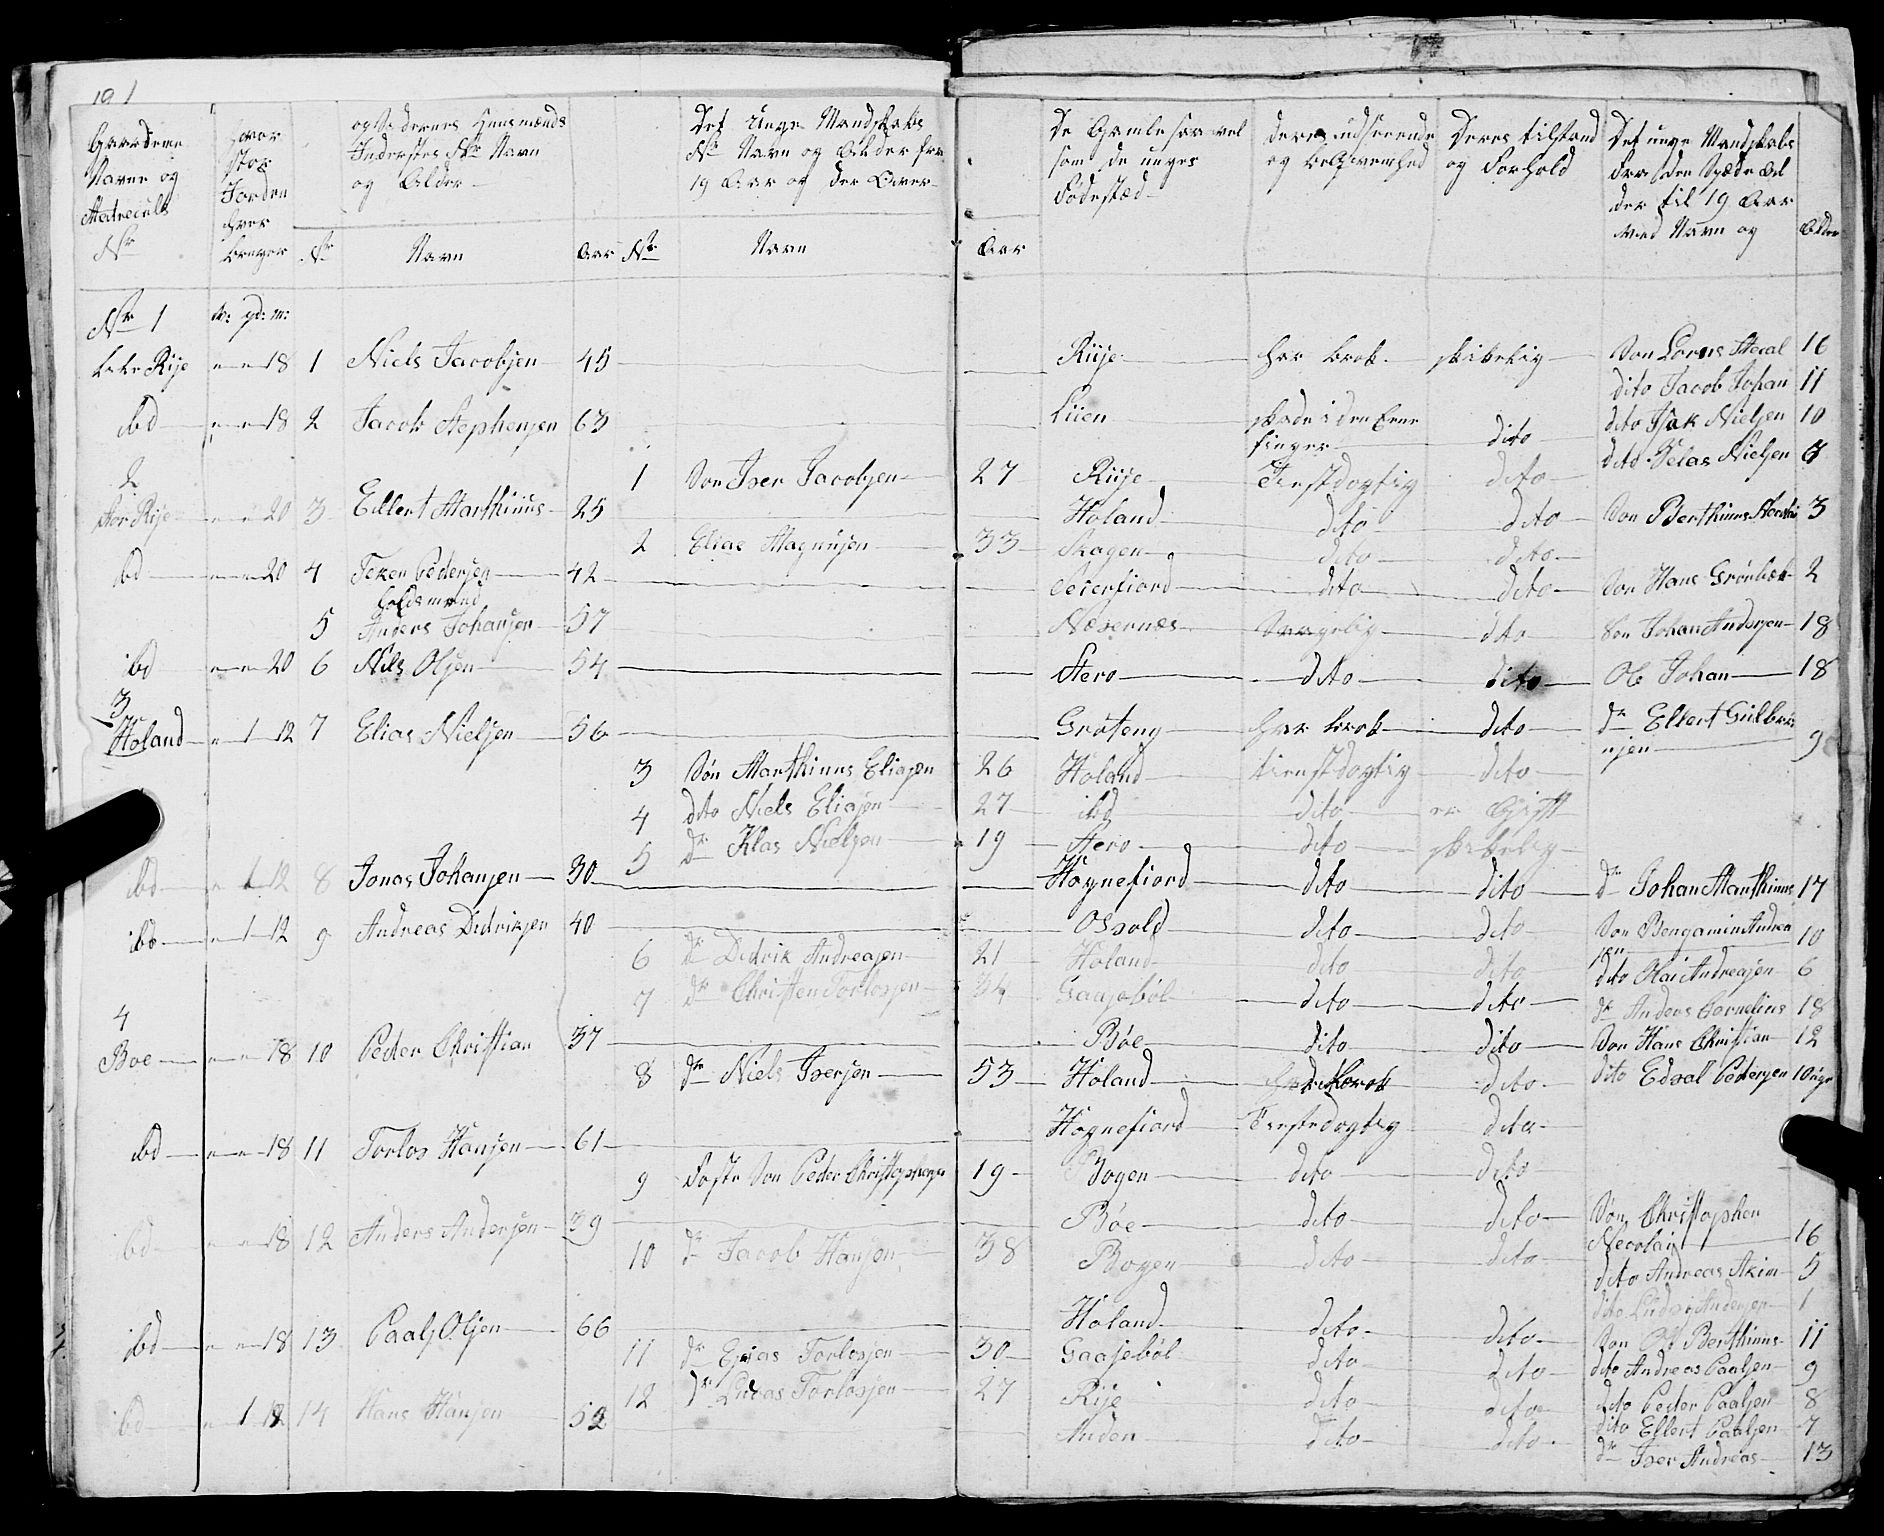 19 1
Gaardene
Navne og
Matreculs
Nr
hvor
stor
Jorden
hver
bruger
og Sædernes Huusmænds
Inderstes Nr Navn
og Alder
Nr Navn Aar
Det Unge Mandskabs
Nr Navn og Alder fra
19 Aar og der Over
Nr Navn Aar
De Gamle saavel
som de unges
Fødestæd
Deres udseende
og beqvemhed
Deres tilstand
og Forhold
Det unge Mandskabs
fra den Spæde Al
der til 19 Aar
ved Navn og Alder
Nr 1 gd: m:
Rise 18 1 Niels Jacobsen 45 Riise har brok skikelig Søn Steal 16
dito Jacob Johan 11
ibd 18 2 Jacob Stephensen 63 Liien skade i den Eene finger dito dito Isak Nielsen 10
dito Nielsen
1 Søn Iver Jacobsen 27 Riise Tienstdygtig dito
2
Stor Rise 20 3 Ellert Marthinus 25 Holand dito dito Søn Berthinus 3
2 Elias Magnusen 33 Skagen dito dito
ibd 20 4 Pedersen 42 dito dito Søn Hans Grønbæk 2
5 Anders Johansen 57 Næsernæs dito Søn Johan Andersen 18
ibd 20 6 Nils Olsen 54 Stero dito dito Ole Johan 18
3
Holand 1 12 7 Elias Nielsen 56 Grøteng har brok dito dr Ellert Gulbra
nsen 9
3 Søn Marthinus Eliasen 26 Holand tienstdygtig dito
4 dito Niels Eliasen 27 ibd dito er Gift
5 dr Klas Nielsen 19 Stero dito skikelig
ibd 1 12 8 Jonas Johansen 30 Hognefiord dito dito dr Johan Marthinus 17
ibd 1 12 9 Andreas Didriksen 40 Osvold dito dito Søn Bengamin Andrea
sen 10
6 dr Didrik Andreasen 21 Holand dito dito dito Olai Andreasen 6
7 dr Christen Torlosen 34 Gaasebøl dito dito dr Anders Cornelius 18
4
Boe 18 10 Peder Christian 37 Bøe dito dito Søn Hans Christian 12
8 dr Niels Iversen 53 Holand har brok dito dito Edval Pedersen 10
ibd 18 11 Torlos Hansen 61 Hognefiord Tienstdygtig dito
9 Foster Søn Peder Christophersen 19 Bogen dito dito
ibd 18 12 Anders Andersen 39 Bøe dito dito Søn Christopher
Necolai 16
10 dr Jacob Hansen 38 Bogen dito dito dito Andreas Akim 5
dito Ludvig Andersen 1
ibd 18 13 Paal Olsen 66 Holand dito dito Søn Ole Berthinus 11
11 dr Esias Torlosen 30 Gaasebøl dito dito dito Andreas Paalsen 9
12 dr Lucas Torlosen 27 Rise dito dito dito Peder Paalsen 8
dito Ellert Paalsen 7
ibd 1 12 14 Hans Hansen 52 Anden dito dito dr Iver Andreas 13